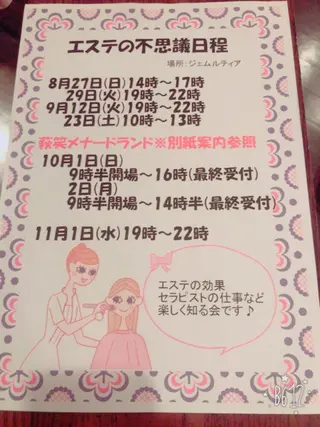 エステの不思議日程
場所:ジェムルティア
8月27日(日)14時～17時
29日(火)19時～22時
9月12日(火)19時～22時
23日(土)10時～13時
萩笑メナードランド※別紙案内参照
10月1日(日)
9時半開場～16時(最終受付)
2日(月)
9時半開場～14時半(最終受付)
11月1日(水)19時～22時
エステの効果
セラピストの仕事など
楽しく知る会です♪